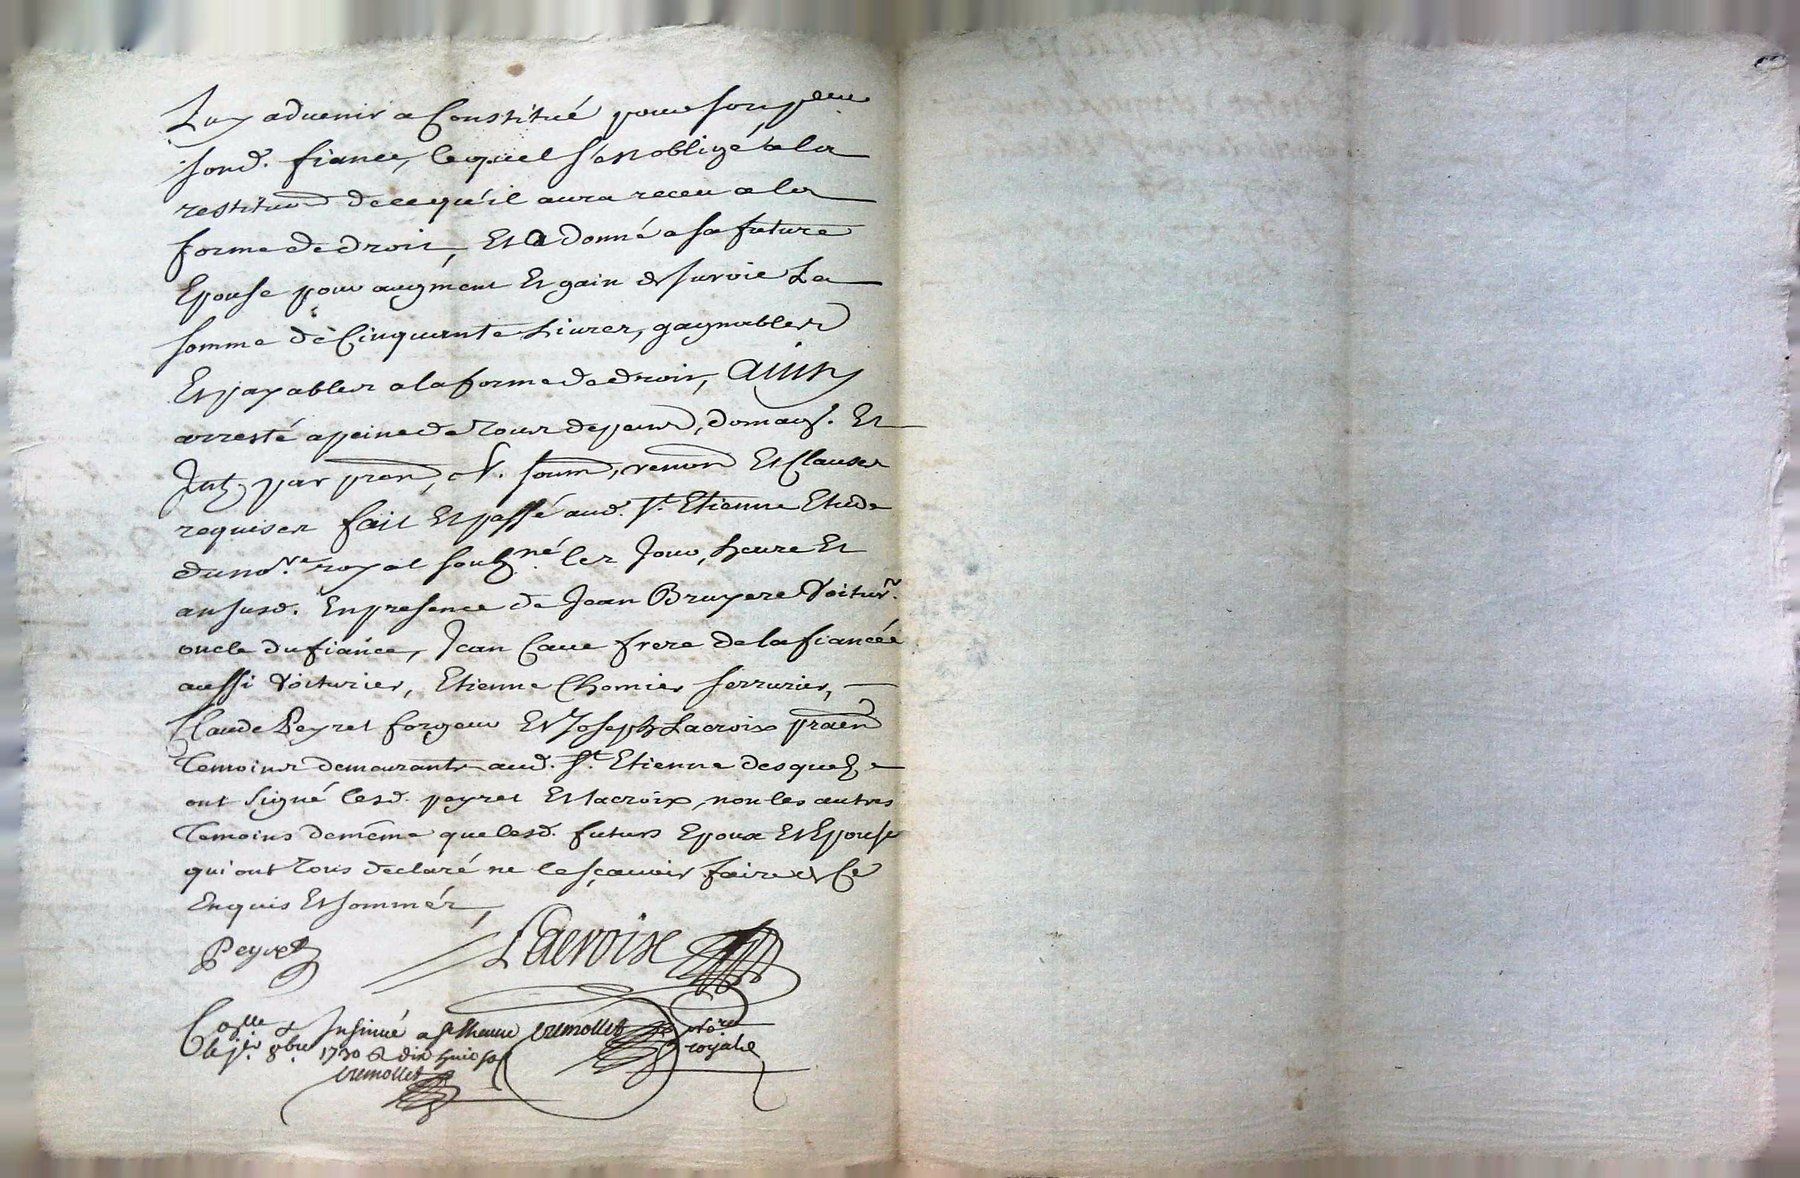 Luy advenir a Constitué pour son peur
sond. fiancé, lequel s'est obligé a la
restituon de ce qu'il aura receu a la
forme de droit, Et a donné a sa future
Epouse pour augment Et gain de survie La
somme de Cinquante Livres, gagnables
Et payables a la forme de droit, ainsy
arresté a peine de tous depens, domag. Et
Int. par prom, obl. soum, renon Et Clauses
requises fait Et passé aud. St. Etienne Etude
du no.re royal soubz.né les Jour, heure Et
an susd. En presence de Jean Bruyere Voitur.
oncle du fiancé, Jean Cave frere de la fiancée
aussi Voiturier, Etienne Chomier serrurier,
Claude Peyret forgeur Et Joseph Lacroix praen
Temoins demeurants aud. St. Etienne desquelz
ont signé lesd. peyret Et lacroix, non les autres
Temoins de même que lesd. futurs Epoux Et Epouse
qui ont tous declaré ne le sçavoir faire de Ce
Enquis Et sommés,
Peyret Lacroix
Con.lle & Insinué a St Etienne
le 8bre 1730 R dix huit sols
no.re
royal